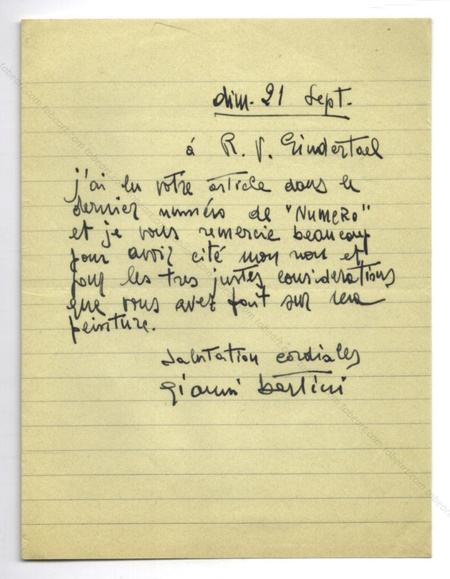 dim. 21 Sept.
á R. V. Gindertael
j'ai lu votre article dans le
dernier numéro de "NUMERO"
et je vous remercie beaucoup
pour avoir cité mon nom et
pour les tres justes considerations
que vous avez fait sur
peinture.
Salutation cordiales
Gianni Bertini